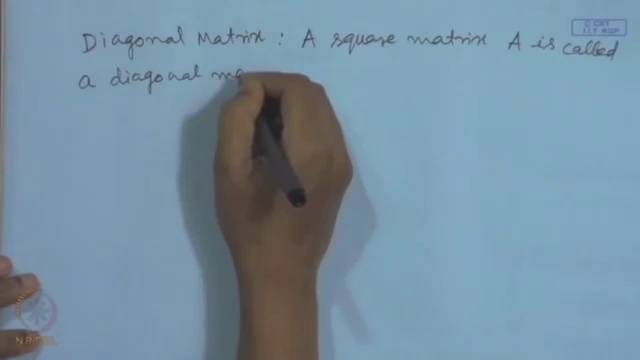 © CET
I.I.T. KGP
Diagonal Matrix : A square matrix A is called
a diagonal ma
NPTEL